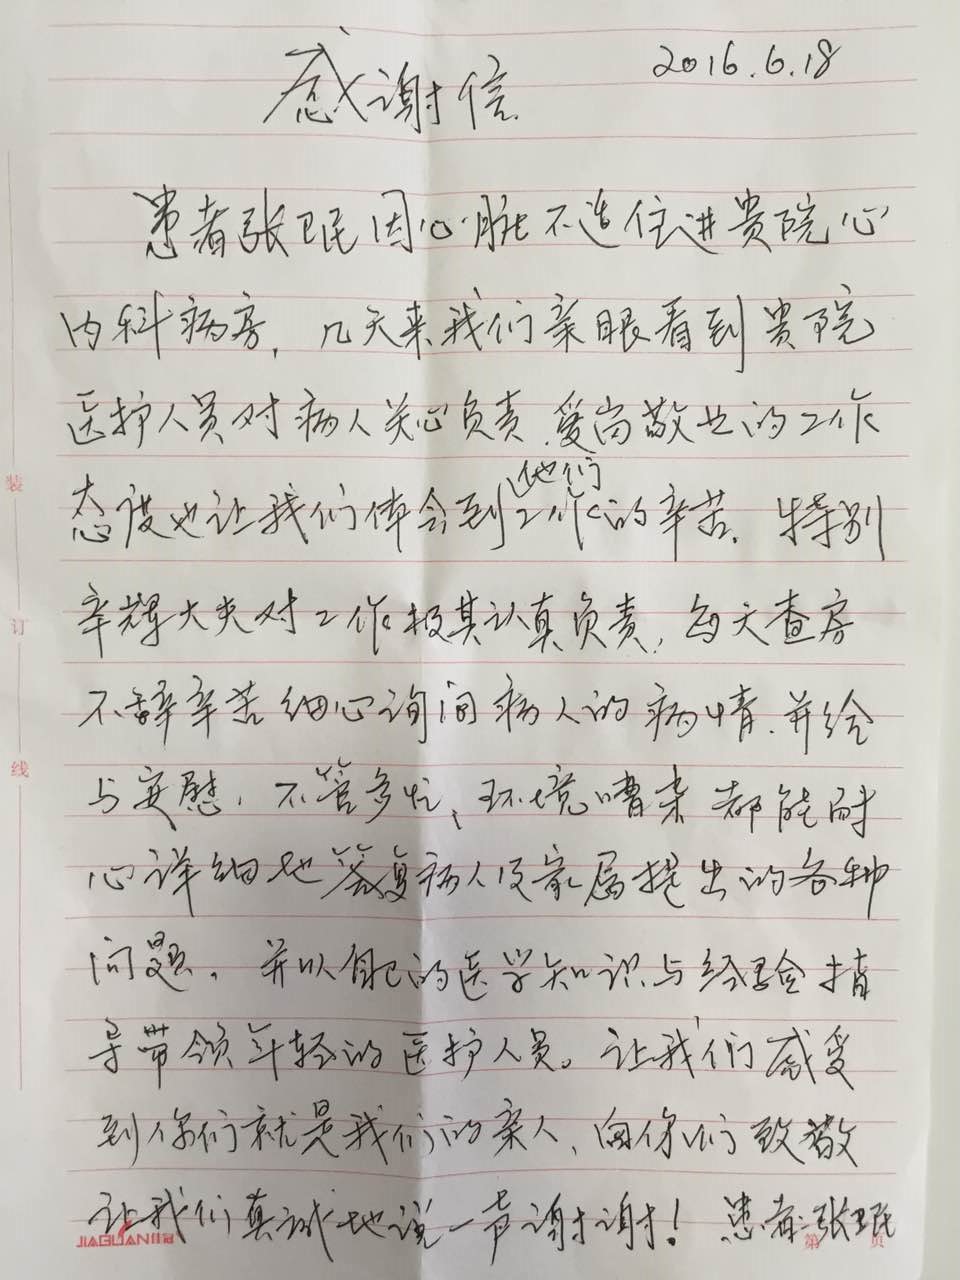 感谢信
2016.6.18
患者张卫民因心脏不适住进贵院心
内科病房，几天来我们亲眼看到贵院
医护人员对病人关心负责.爱岗敬业的工作
态度也让我们体会到他们工作的辛苦.特别
辛辉大夫对工作极其认真负责,每天查房
不辞辛苦细心询问病人的病情.并给
与安慰,不管多忙、环境嘈杂都能耐
心详细地答复病人及家属提出的各种
问题,并以自己的医学知识与经验指
导带领年轻的医护人员。让我们感受
到你们就是我们的亲人、向你们致敬
让我们真诚地说一声谢谢!患者:张卫民
装
订
线
JIAGUAN
第 页